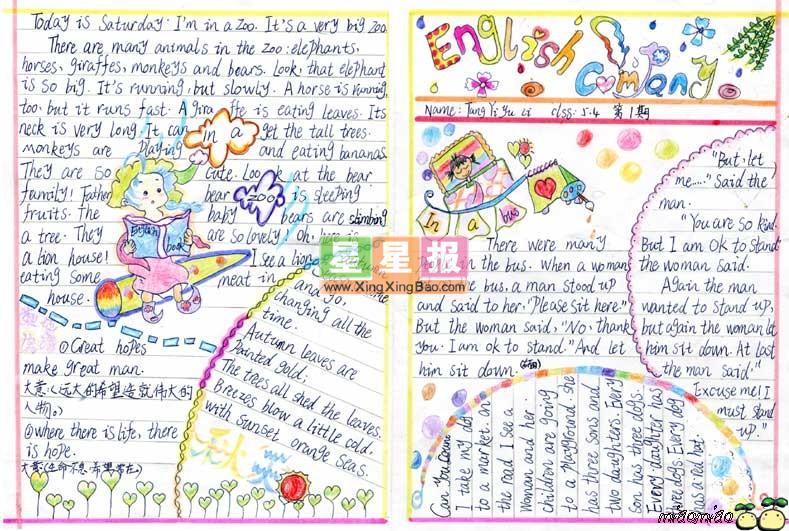 Today is Saturday. I'm in a zoo. It's a very big zoo.
There are many animals in the zoo: elephants,
horses, giraffes, monkeys and bears. Look, that elephant
is so big. It's running, but slowly. A horse is running,
too, but it runs fast. A giraffe is eating leaves. Its
neck is very long. It can get the tall trees.
monkeys are playing and eating bananas.
They are so cute. Look at the bear
family! Father bear is sleeping
fruits. The baby bears are climbing
a tree. They are so lovely. Oh, here is
a lion house! I see a lion
eating some meat in
house.
in a
zoo
English
book
①Great hopes
make great man.
大意:(远大的希望造就伟大的
人物。)
②where there is life, there
is hope.
大意(生命不息,希望常在。)
Autumn
and go,
changing all the
time.
Autumn leaves are
Painted gold;
The trees all shed the leaves.
Breezes blow a little cold.
with sunset orange seas.
秋
English
Company
Name: Tang Yi Yu Li class: 5.4 第1期
In a bus
There were many
in the bus. When a woman
bus, a man stood up
and said to her, "Please sit here."
But the woman said, "No, thank
you. I am ok to stand." And let
him sit down.
"But, let
me....." Said the
man.
"You are so kind.
But I am ok to stand."
the woman said.
Again the man
wanted to stand up,
but again the woman let
him sit down. At last
the man said."
Excuse me! I
must stand
up."
Can You Count
I take my dog
to a market. on
the road I see a
woman and her
children are going
to a playground. she
has three sons and
two daughters. Every
son has three dogs.
Every daughter has
three dogs. Every dog
has a red hat.
星星报
www.XingXingBao.com
miaomiao